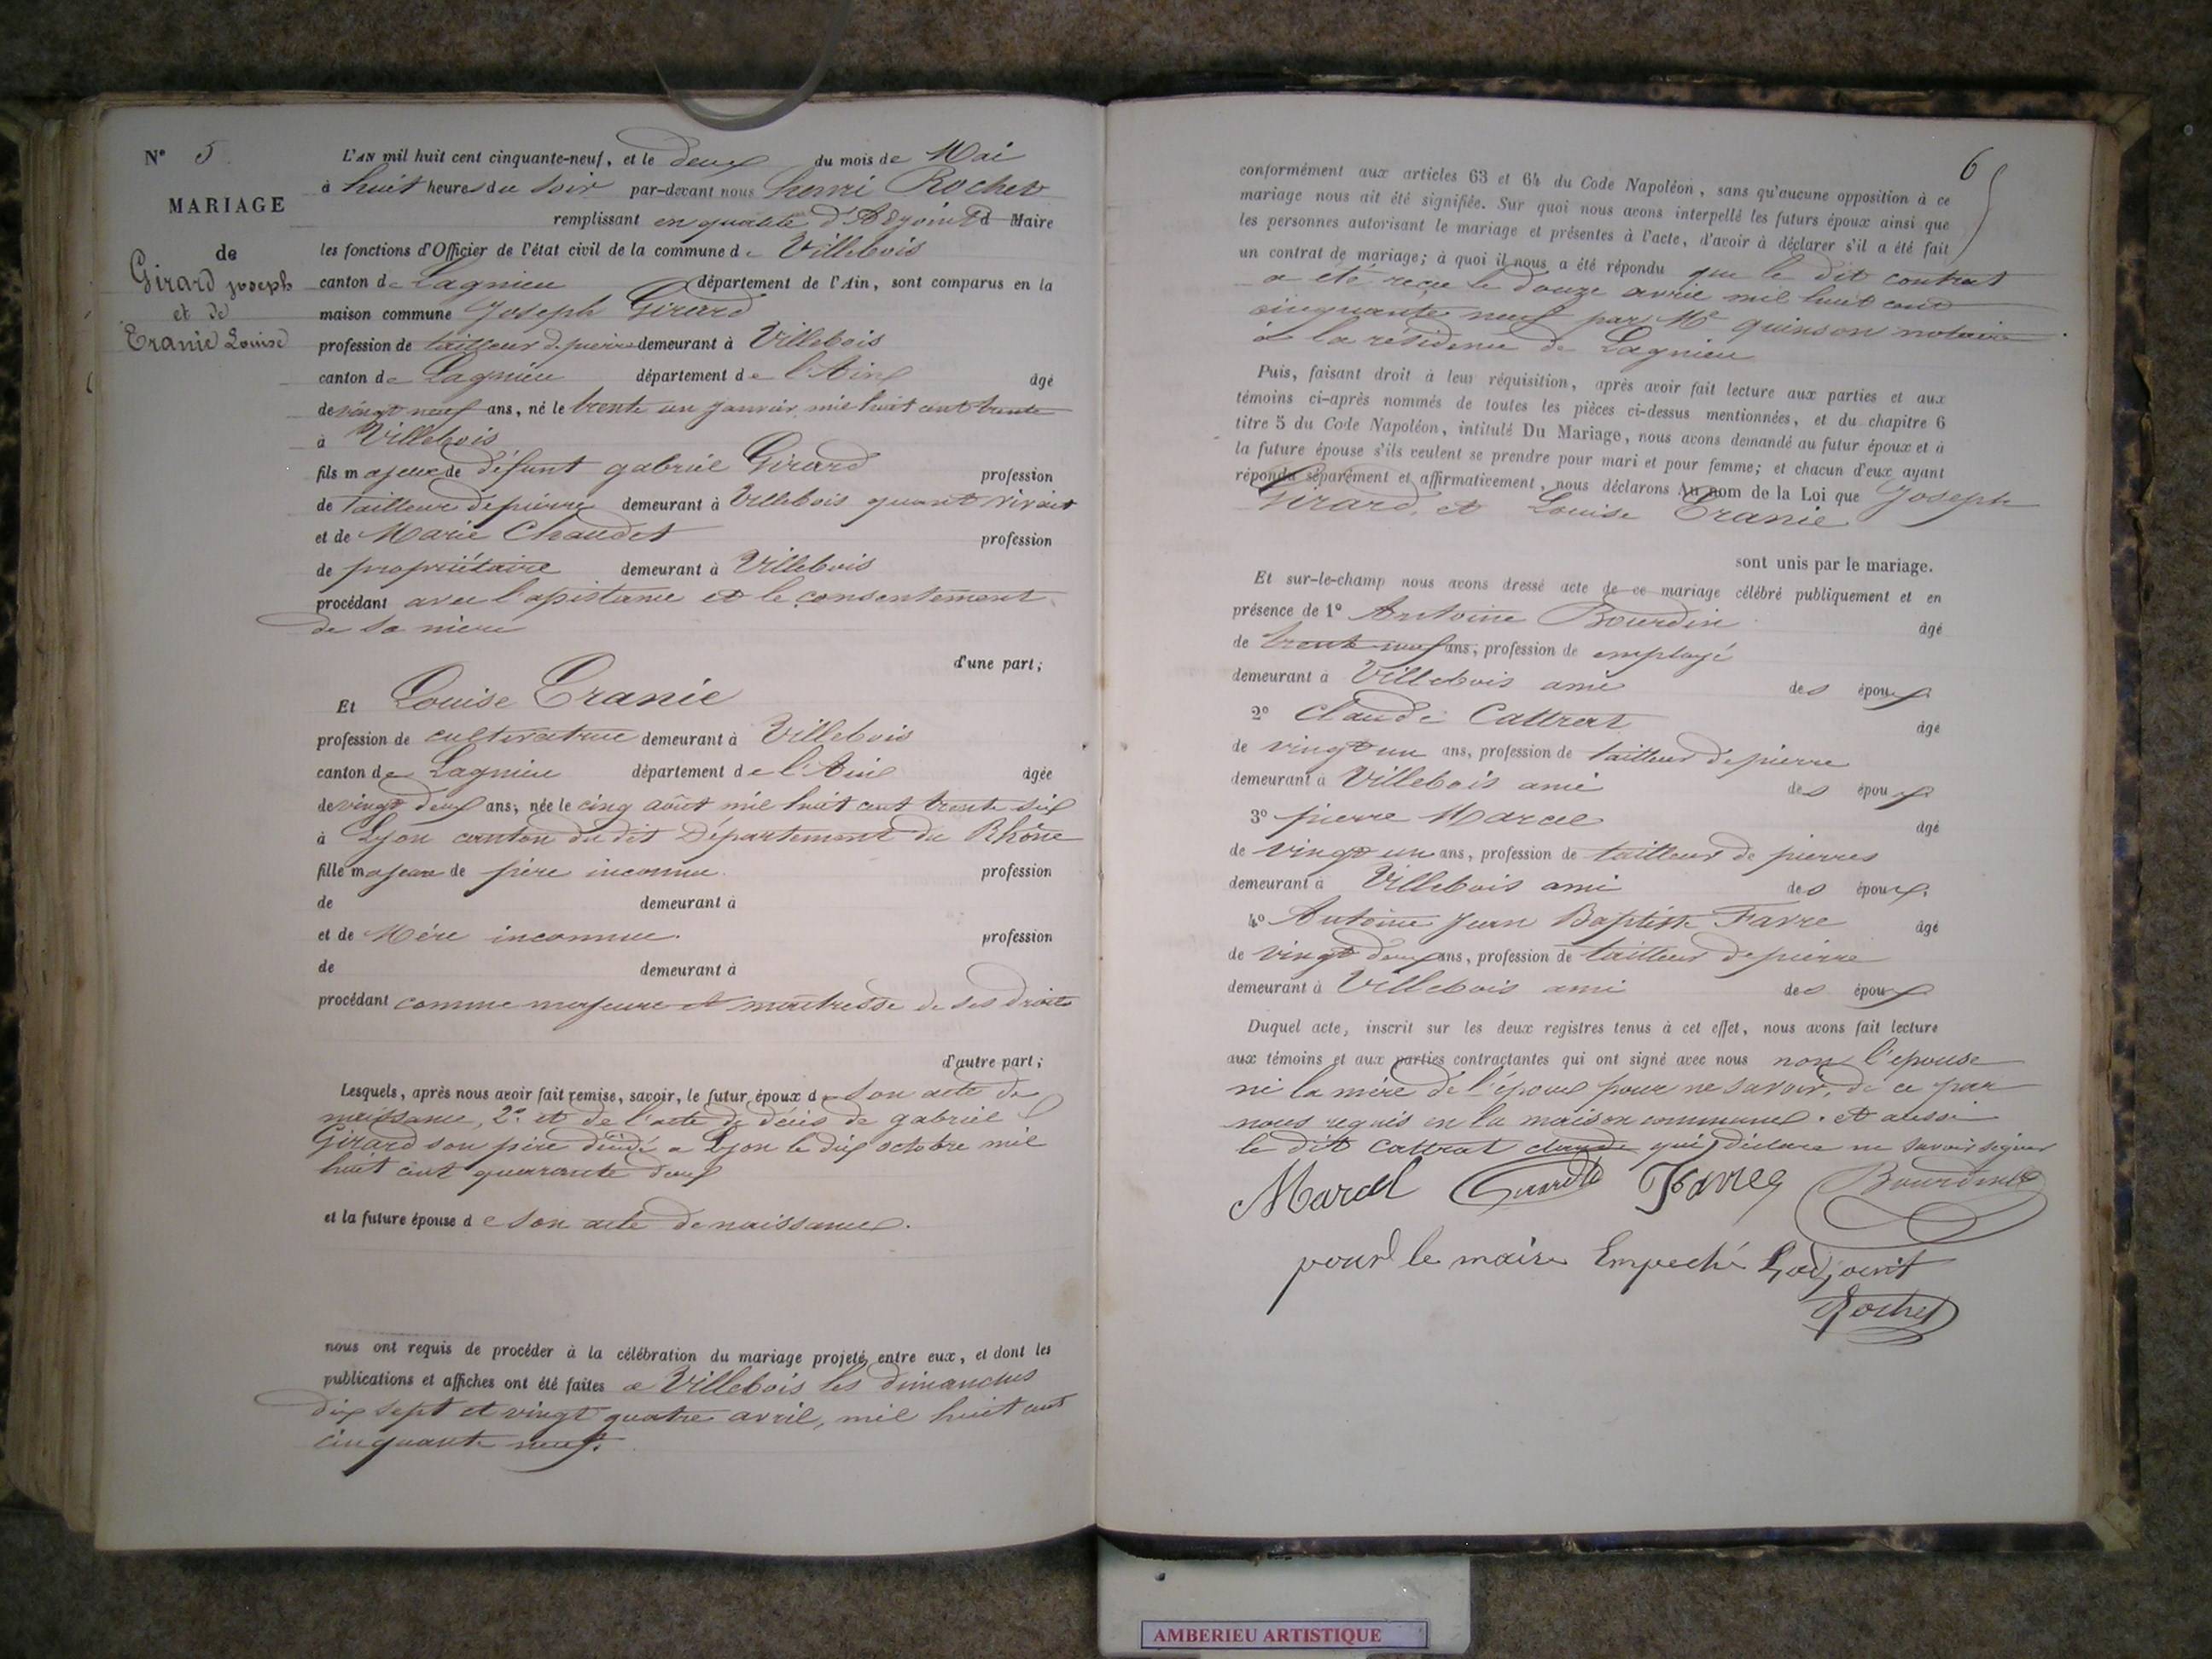 N° 5
MARIAGE
de
Girard joseph
et de
Cranie Louise
L'AN mil huit cent cinquante-neuf, et le deux du mois de Mai
à huit heures du soir par-devant nous henri Rochet
remplissant en qualité d'Adjoint d Maire
les fonctions d'Officier de l'état civil de la commune de Villebois
canton de Lagnieu département de l'Ain, sont comparus en la
maison commune Joseph Girard
profession de tailleur de pierre demeurant à Villebois
canton de Lagnieu département de l'Ain âgé
de vingt neuf ans, né le trente un janvier mil huit cent trente
à Villebois
fils majeur de défunt gabriel Girard profession
de tailleur de pierre demeurant à Villebois quant vivait
et de Marie Chaudet profession
de propriétaire demeurant à Villebois
procédant avec l'assistance et le consentement
de sa mère
d'une part;
Et Louise Cranie
profession de cultivatrice demeurant à Villebois
canton de Lagnieu département de l'Ain âgée
de vingt deux ans, née le cinq août mil huit cent trente six
à Lyon canton du dit Département du Rhône
fille majeure de père inconnu profession
de demeurant à
et de Mère inconnue. profession
de demeurant à
procédant comme majeure et maitresse de ses droits
d'autre part;
Lesquels, après nous avoir fait remise, savoir, le futur époux de son acte de
naissance, 2° et de l'acte de décès de gabriel
Girard son père décédé a Lyon le dix octobre mil
huit cent quarante deux
et la future épouse de son acte de naissance.
nous ont requis de procéder à la célébration du mariage projeté entre eux, et dont les
publications et affiches ont été faites a Villebois les dimanches
dix sept et vingt quatre avril, mil huit cent
cinquante neuf.
6
conformément aux articles 63 et 64 du Code Napoléon, sans qu'aucune opposition à ce
mariage nous ait été signifiée. Sur quoi nous avons interpellé les futurs époux ainsi que
les personnes autorisant le mariage et présentes à l'acte, d'avoir à déclarer s'il a été fait
un contrat de mariage; à quoi il nous a été répondu que le dit contrat
a été reçu le douze avril mil huit cent
cinquante neuf par Me quinson notaire
à la résidence de Lagnieu
Puis, faisant droit à leur réquisition, après avoir fait lecture aux parties et aux
témoins ci-après nommés de toutes les pièces ci-dessus mentionnées, et du chapitre 6
titre 5 du Code Napoléon, intitulé Du Mariage, nous avons demandé au futur époux et à
la future épouse s'ils veulent se prendre pour mari et pour femme; et chacun d'eux ayant
répondu séparément et affirmativement, nous déclarons Au nom de la Loi que Joseph
Girard, et Louise Cranie
sont unis par le mariage.
Et sur-le-champ nous avons dressé acte de ce mariage célébré publiquement et en
présence de 1° Antoine Bourdin âgé
de trente neuf ans, profession de employé
demeurant à Villebois ami des époux
2° Claude Cattrat âgé
de vingt un ans, profession de tailleur de pierre
demeurant à Villebois ami des époux
3° pierre Marcel âgé
de vingt un ans, profession de tailleur de pierres
demeurant à Villebois ami des époux,
4° Antoine Jean Baptiste Favre âgé
de vingt deux ans, profession de tailleur de pierre
demeurant à Villebois ami des époux
Duquel acte, inscrit sur les deux registres tenus à cet effet, nous avons fait lecture
aux témoins et aux parties contractantes qui ont signé avec nous non l'épouse
ni la mère de l'époux pour ne savoir, de ce par
nous requis en la maison commune. et aussi
le dit Cattrat claude qui déclare ne savoir signer
Marcel Girard Favre Bourdin
pour le maire Empeché Ladjoint
Rochet
AMBERIEU ARTISTIQUE